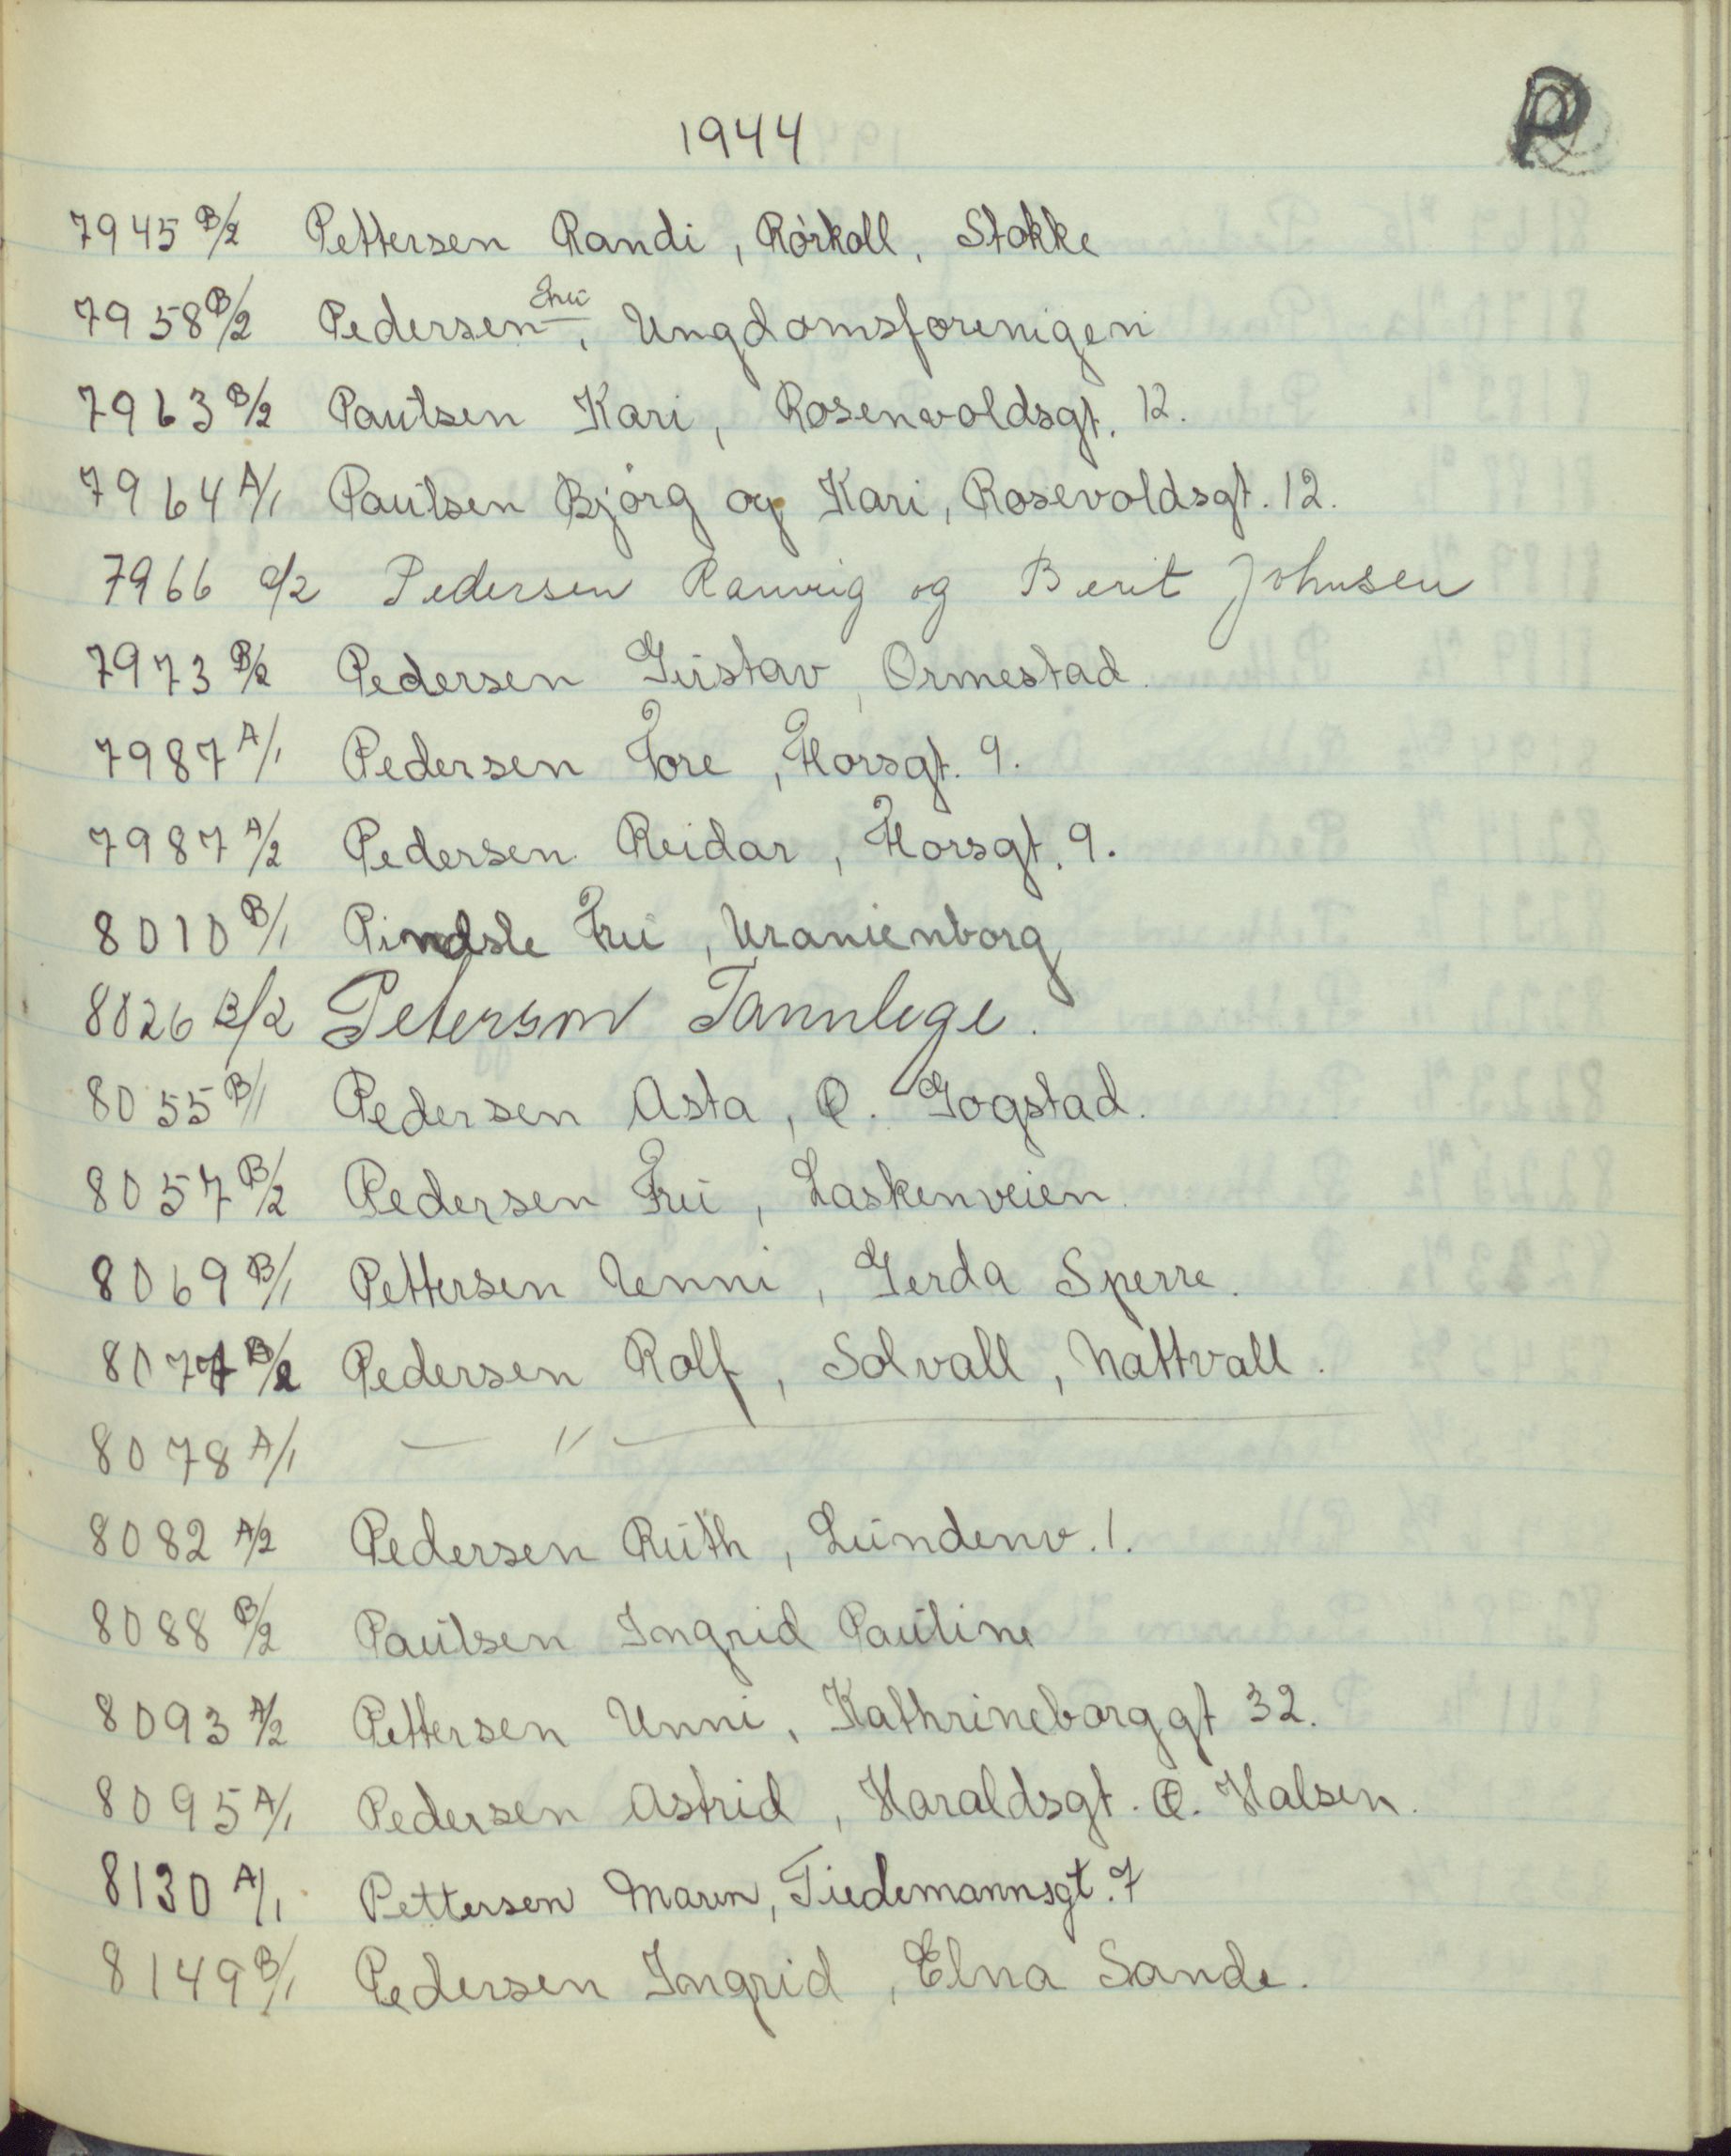 P
1944
7945 B/2 Pettersen Randi, Rørkoll, Stokke
7958 B/2 Pedersen Fru, Ungdomsforenigen
7963 B/2 Paulsen Kari, Rosenvoldsgt. 12.
7964 A/1 Paulsen Bjørg og Kari, Rosevoldsgt. 12.
7966 a/2 Pedersen Ranvig og Berit Johnsen
7973 B/2 Pedersen Gustav, Ormestad.
7987 A/1 Pedersen Tore, Thorsgt. 9.
7987 A/2 Pedersen Reidar, Thorsgt. 9.
8010 B/1 Pindsle Fru, Uranienborg
8026 B/2 Peterson Tannlege.
8055 B/1 Pedersen Asta, Ø. Gogstad.
8057 B/2 Pedersen Fru, Laskenveien.
8069 B/1 Pettersen Unni, Gerda Sperre.
8077 B/2 Pedersen Rolf, Solvall, Nattvall.
8078 A/1 — " —
8082 A/2 Pedersen Ruth, Lundenv. 1.
8088 B/2 Paulsen Ingrid Pauline
8093 A/2 Pettersen Unni, Kathrineborggt 32.
8095 A/1 Pedersen Astrid, Haraldsgt. Ø. Halsen.
8130 A/1 Pettersen Maren, Tiedemannsgt. 7
8149 B/1 Pedersen Ingrid, Elna Sande.